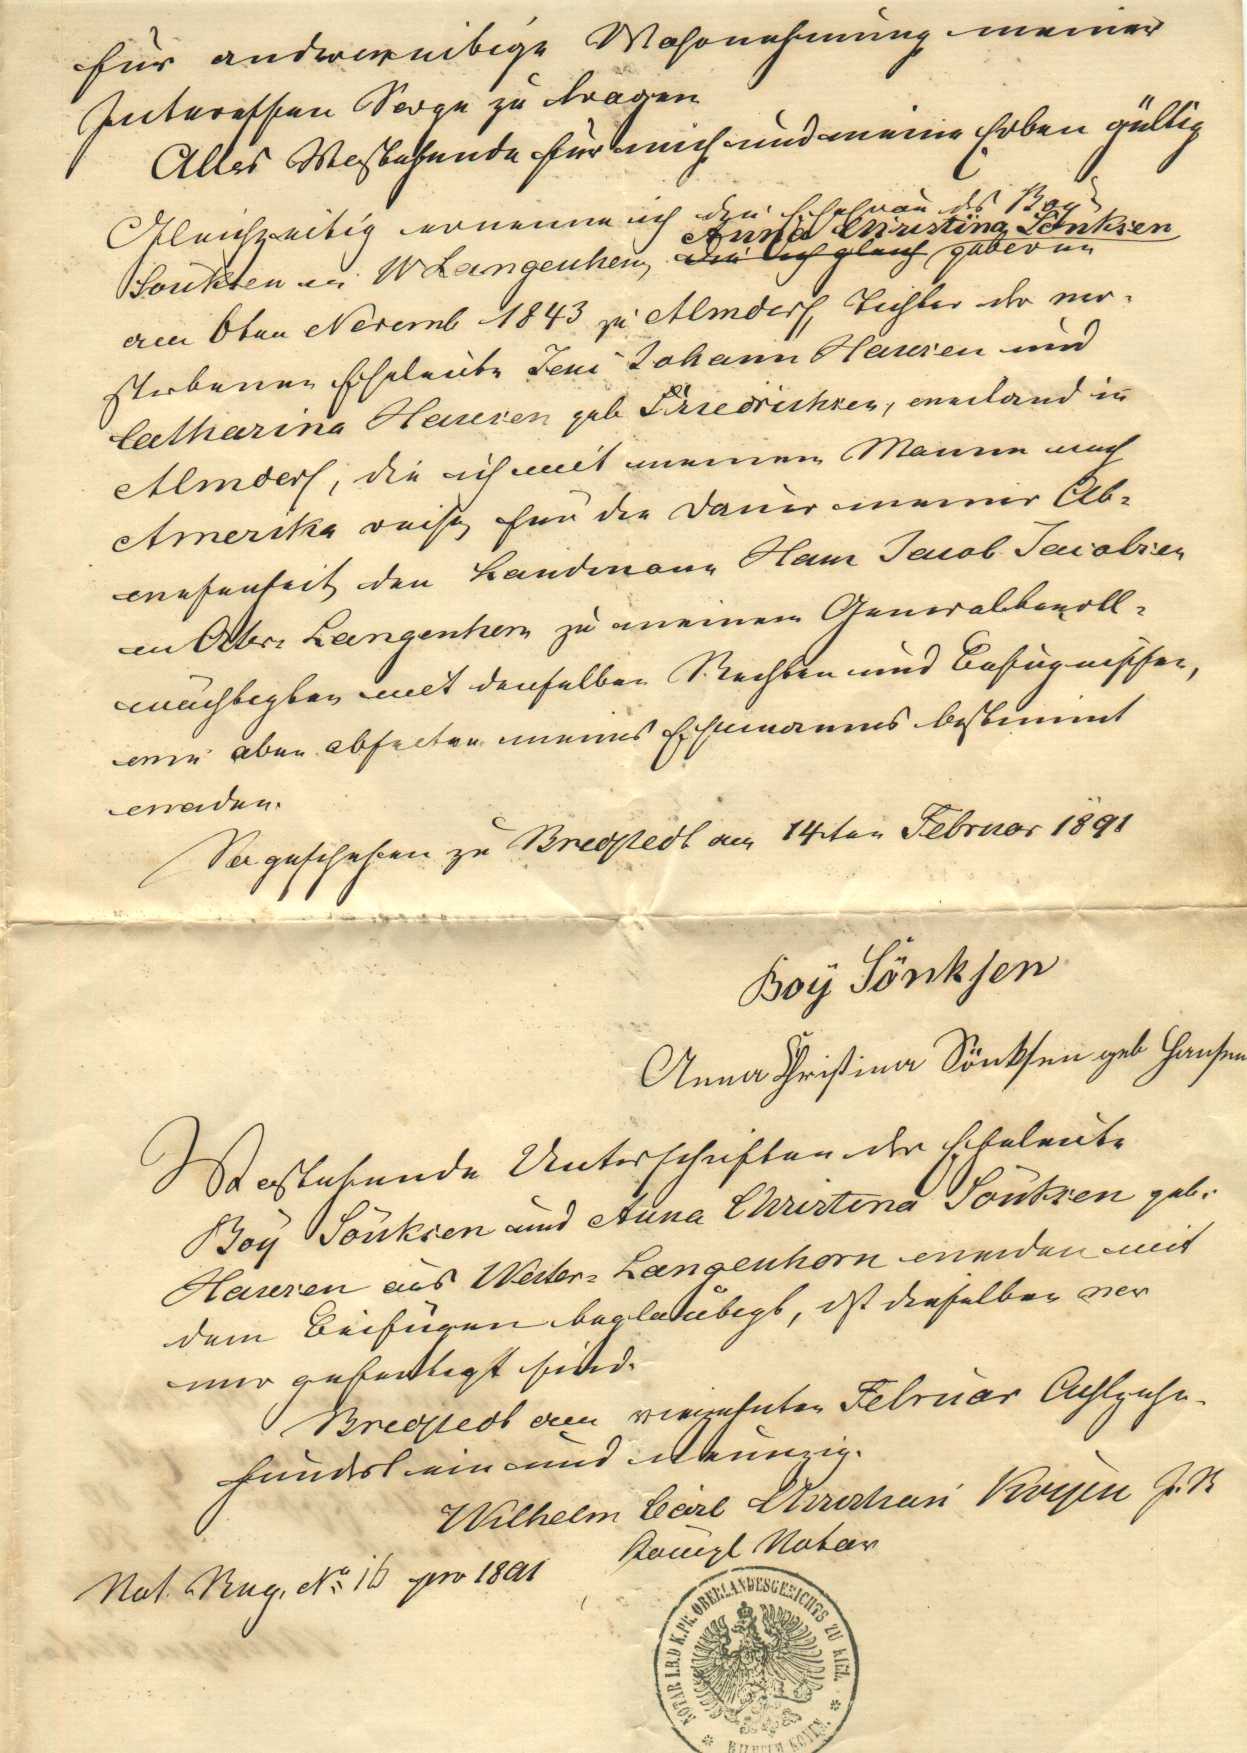 für anderweitige Wahrnehmung meiner
Interessen Sorge zu tragen
Alles Vorstehende für mich und meine Erben gültig
Gleichzeitig ernenne ich die Ehefrau des Boy
Anna Christina Sönksen
Sönksen in W Langenhorn, die ich gleich geboren
am 6ten Novemb 1843 zu Almdorf, Tochter der ver-
storbenen Eheleute Jens Johann Hansen und
Catharina Hansen geb Friedrichsen, weiland in
Almdorf, die ich mit meinem Manne nach
Amerika reise, für die Dauer meiner Ab-
wesenheit den Landmann Hans Jacob Jacobsen
in Oster-Langenhorn zu meinem Generalbevoll-
mächtigten mit denselben Rechten und Befugnissen,
wie oben abseiten meines Ehemannes bestimmt
worden.
So geschehen zu Bredstedt den 14ten Februar 1891
Boÿ Sönksen
Anna Christina Sönksen geb Hansen
Vorstehende Unterschriften der Eheleute
Boy Sönksen und Anna Christina Sönksen geb.
Hansen aus Wester-Langenhorn werden mit
dem Beifügen beglaubigt, dß dieselben vor
mir gefertigt sind.
Bredstedt den vierzehnten Februar Achtzehn-
hundert ein und neunzig.
Wilhelm Carl Christian J.R
Königl Notar
Not. Reg. No 16 pro 1891
NOTAR I.B.D K.PR. OBERLANDESGERICHTS ZU KIEL.